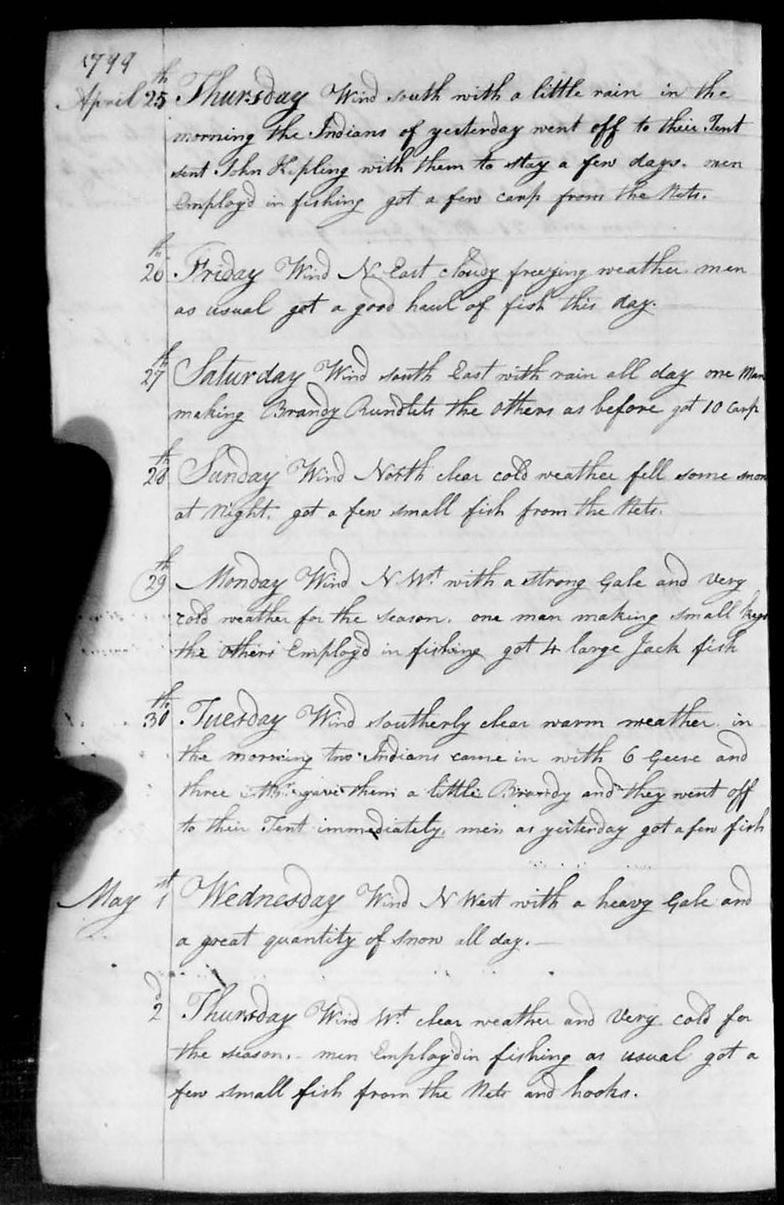 1799
April 25th Thursday Wind south with a little rain in the
morning the Indians of yesterday went off to their Tent
sent John Kipling with them to stay a few days. men
Employd in fishing got a few carp from the Nets.
26th Friday Wind N. East cloudy freezing weather men
as usual got a good haul of fish this day.
27th Saturday Wind south East with rain all day one Man
making Brandy Rundlets the others as before got 10 Carp
28th Sunday Wind North clear cold weather fell some snow
at Night. got a few small fish from the Nets.
29th Monday Wind N. Wt. with a strong Gale and Very
cold weather for the season. one man making small kegs
the others Employd in fishing got 4 large Jack fish
30th Tuesday Wind southerly clear warm weather in
the morning two Indians came in with 6 Geese and
three gave them a little Brandy and they went off
to their Tent immediately, men as yesterday got a few fish
May 1st Wednesday Wind N West with a heavy Gale and
a great quantity of snow all day.
2d Thursday Wind Wt. clear weather and Very cold for
the season. men Employd in fishing as usual got a
few small fish from the Nets and hooks.